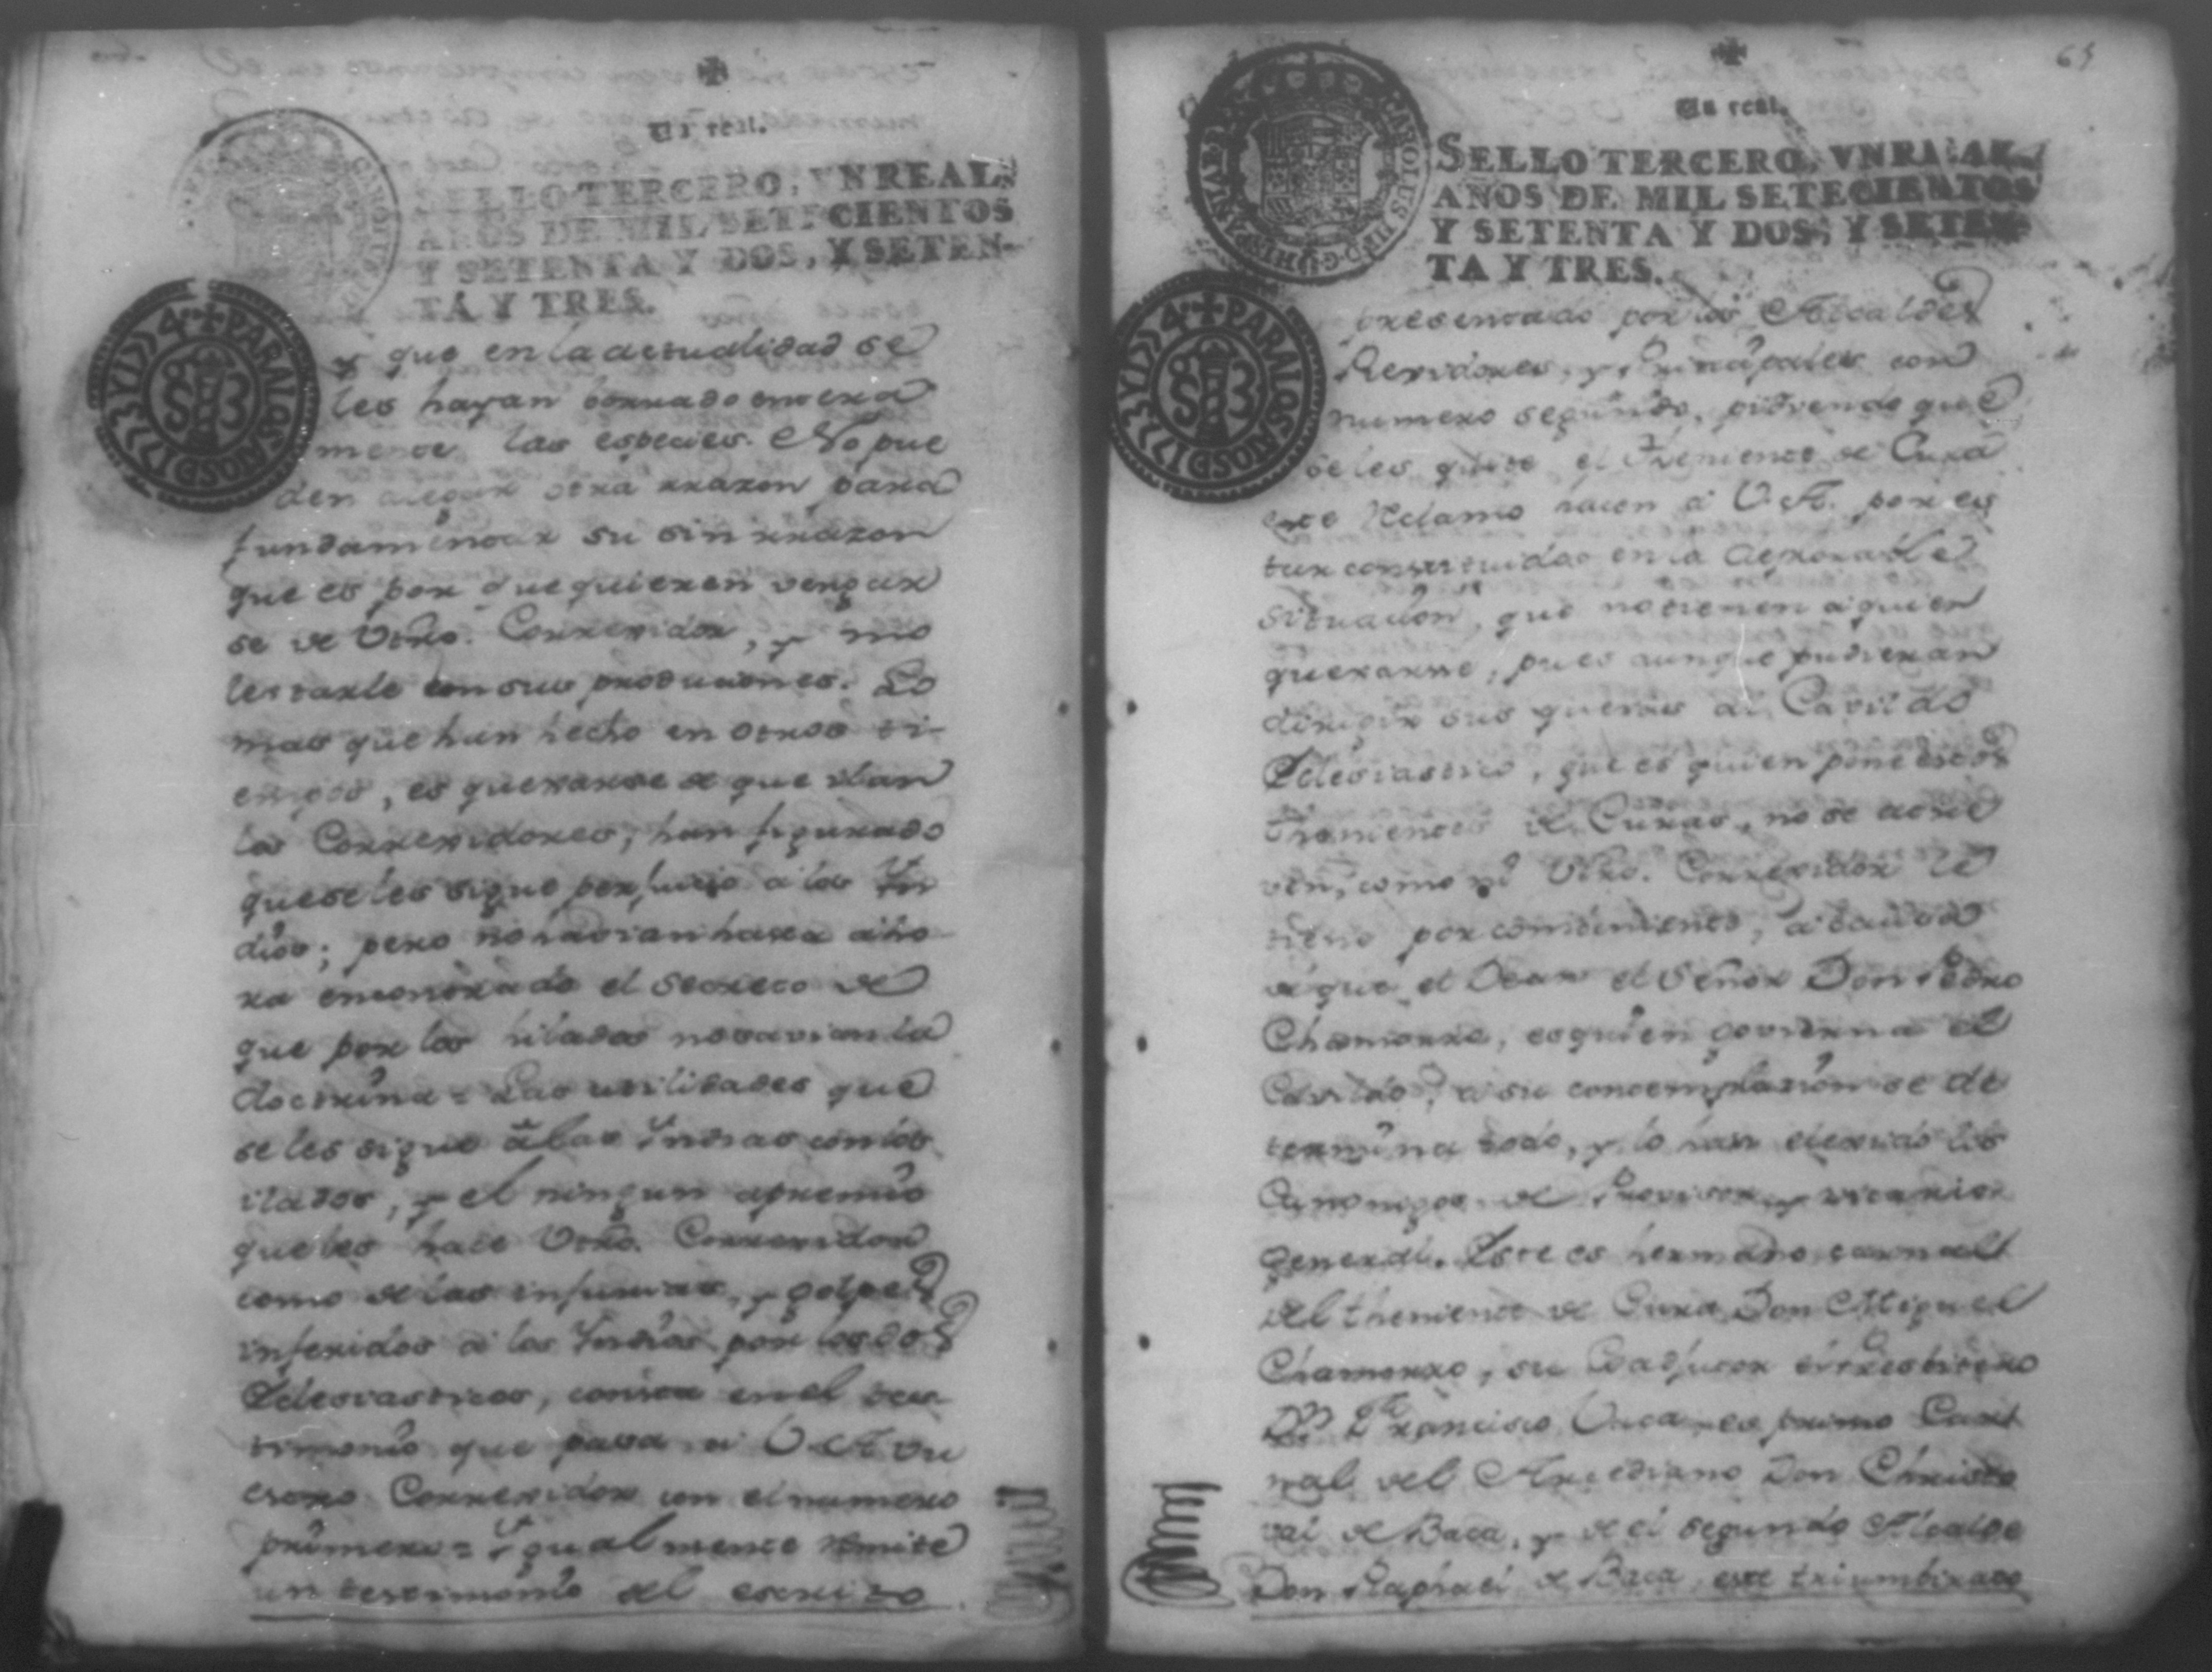 Un real.
SELLO TERCERO, VN REAL,
AÑOS DE MIL SETECIENTOS
Y SETENTA Y DOS, Y SETEN-
TA Y TRES.
PARA LOS AÑOS D 1773 Y 1774
y que en la actualidad se
les hayan borrado entera
mente las especies. No pue
den alegar otra rrazon para
fundamentar su sin rrazon
que es por que quieren vengar
se de Vtro. Correxidor, y mo
lestarle con sus produciones. Lo
mas que han hecho en otros ti-
empos, es quexarse de que
los Correxidores, han figurado
que se les sigue perjuicio a los Yn
dios; pero no havian hasta aho
ra encontrado el secreto de
que por los hilados no savian la
doctrina = Las utilidades que
se les sigue â las Yndias con los
ilados, y el ningun apremio
que les hace Vtro. Correxidor
como de las injurias, y golpes
inferidos a los Yndios por los dos
Eclesiasticos, consta en el tes-
timonio que pasa a V.A. vu
estro Correxidor con el numero
primero = Ygualmente remite
un testimonio del escrito
65
Un real.
SELLO TERCERO, VN REAL,
AÑOS DE MIL SETECIENTOS
Y SETENTA Y DOS, Y SETEN-
TA Y TRES.
CAROLUS III D G HISPAN
PARA LOS AÑOS D 1773 Y 1774
presentado por los Alcaldes
Rexidores, y Principales con
numero segundo, pidiendo que
se les quite el Theniente de Cura
este reclamo hacen a V.A. por es
tar constituidos en la deplorable
situacion, que no tienen a quien
quexarse, pues aunque pudieran
dirigir sus quexas al Cavildo
Eclesiastico, que es quien pone estos
Thenientes de Curas, no se atre
ven, como ni Vtro. Correxidor lo
tiene por combeniente, a causa
de que el Dean el Señor Don Pedro
Chamorro, es quien govierna el
Cavildo, a su contemplazion se de
termina todo, y lo han elexido los
Canonigos de Provisor y vicario
general. Este es hermano carnal
del theniente de Cura Don Miguel
Chamorro, su Coadjutor el Presbitero
Dn. Francisco Vaca es primo Carl
nal del Arcediano Don Christo
val de Baca, y de el segundo Alcalde
Don Raphael de Baca, este triumbirato